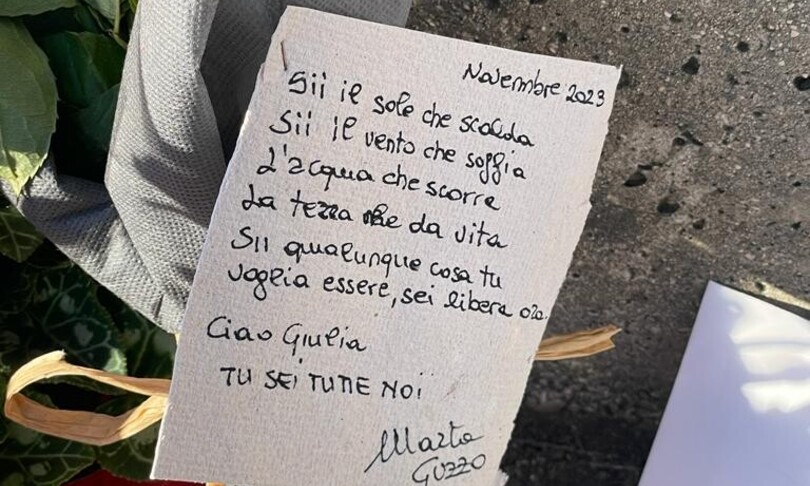 Novembre 2023
Sii il sole che scalda
Sii il vento che soffia
L'acqua che scorre
La terra che da vita
Sii qualunque cosa tu
voglia essere, sei libera ora.
Ciao Giulia
TU SEI TUTTE NOI
Marta
GUZZO